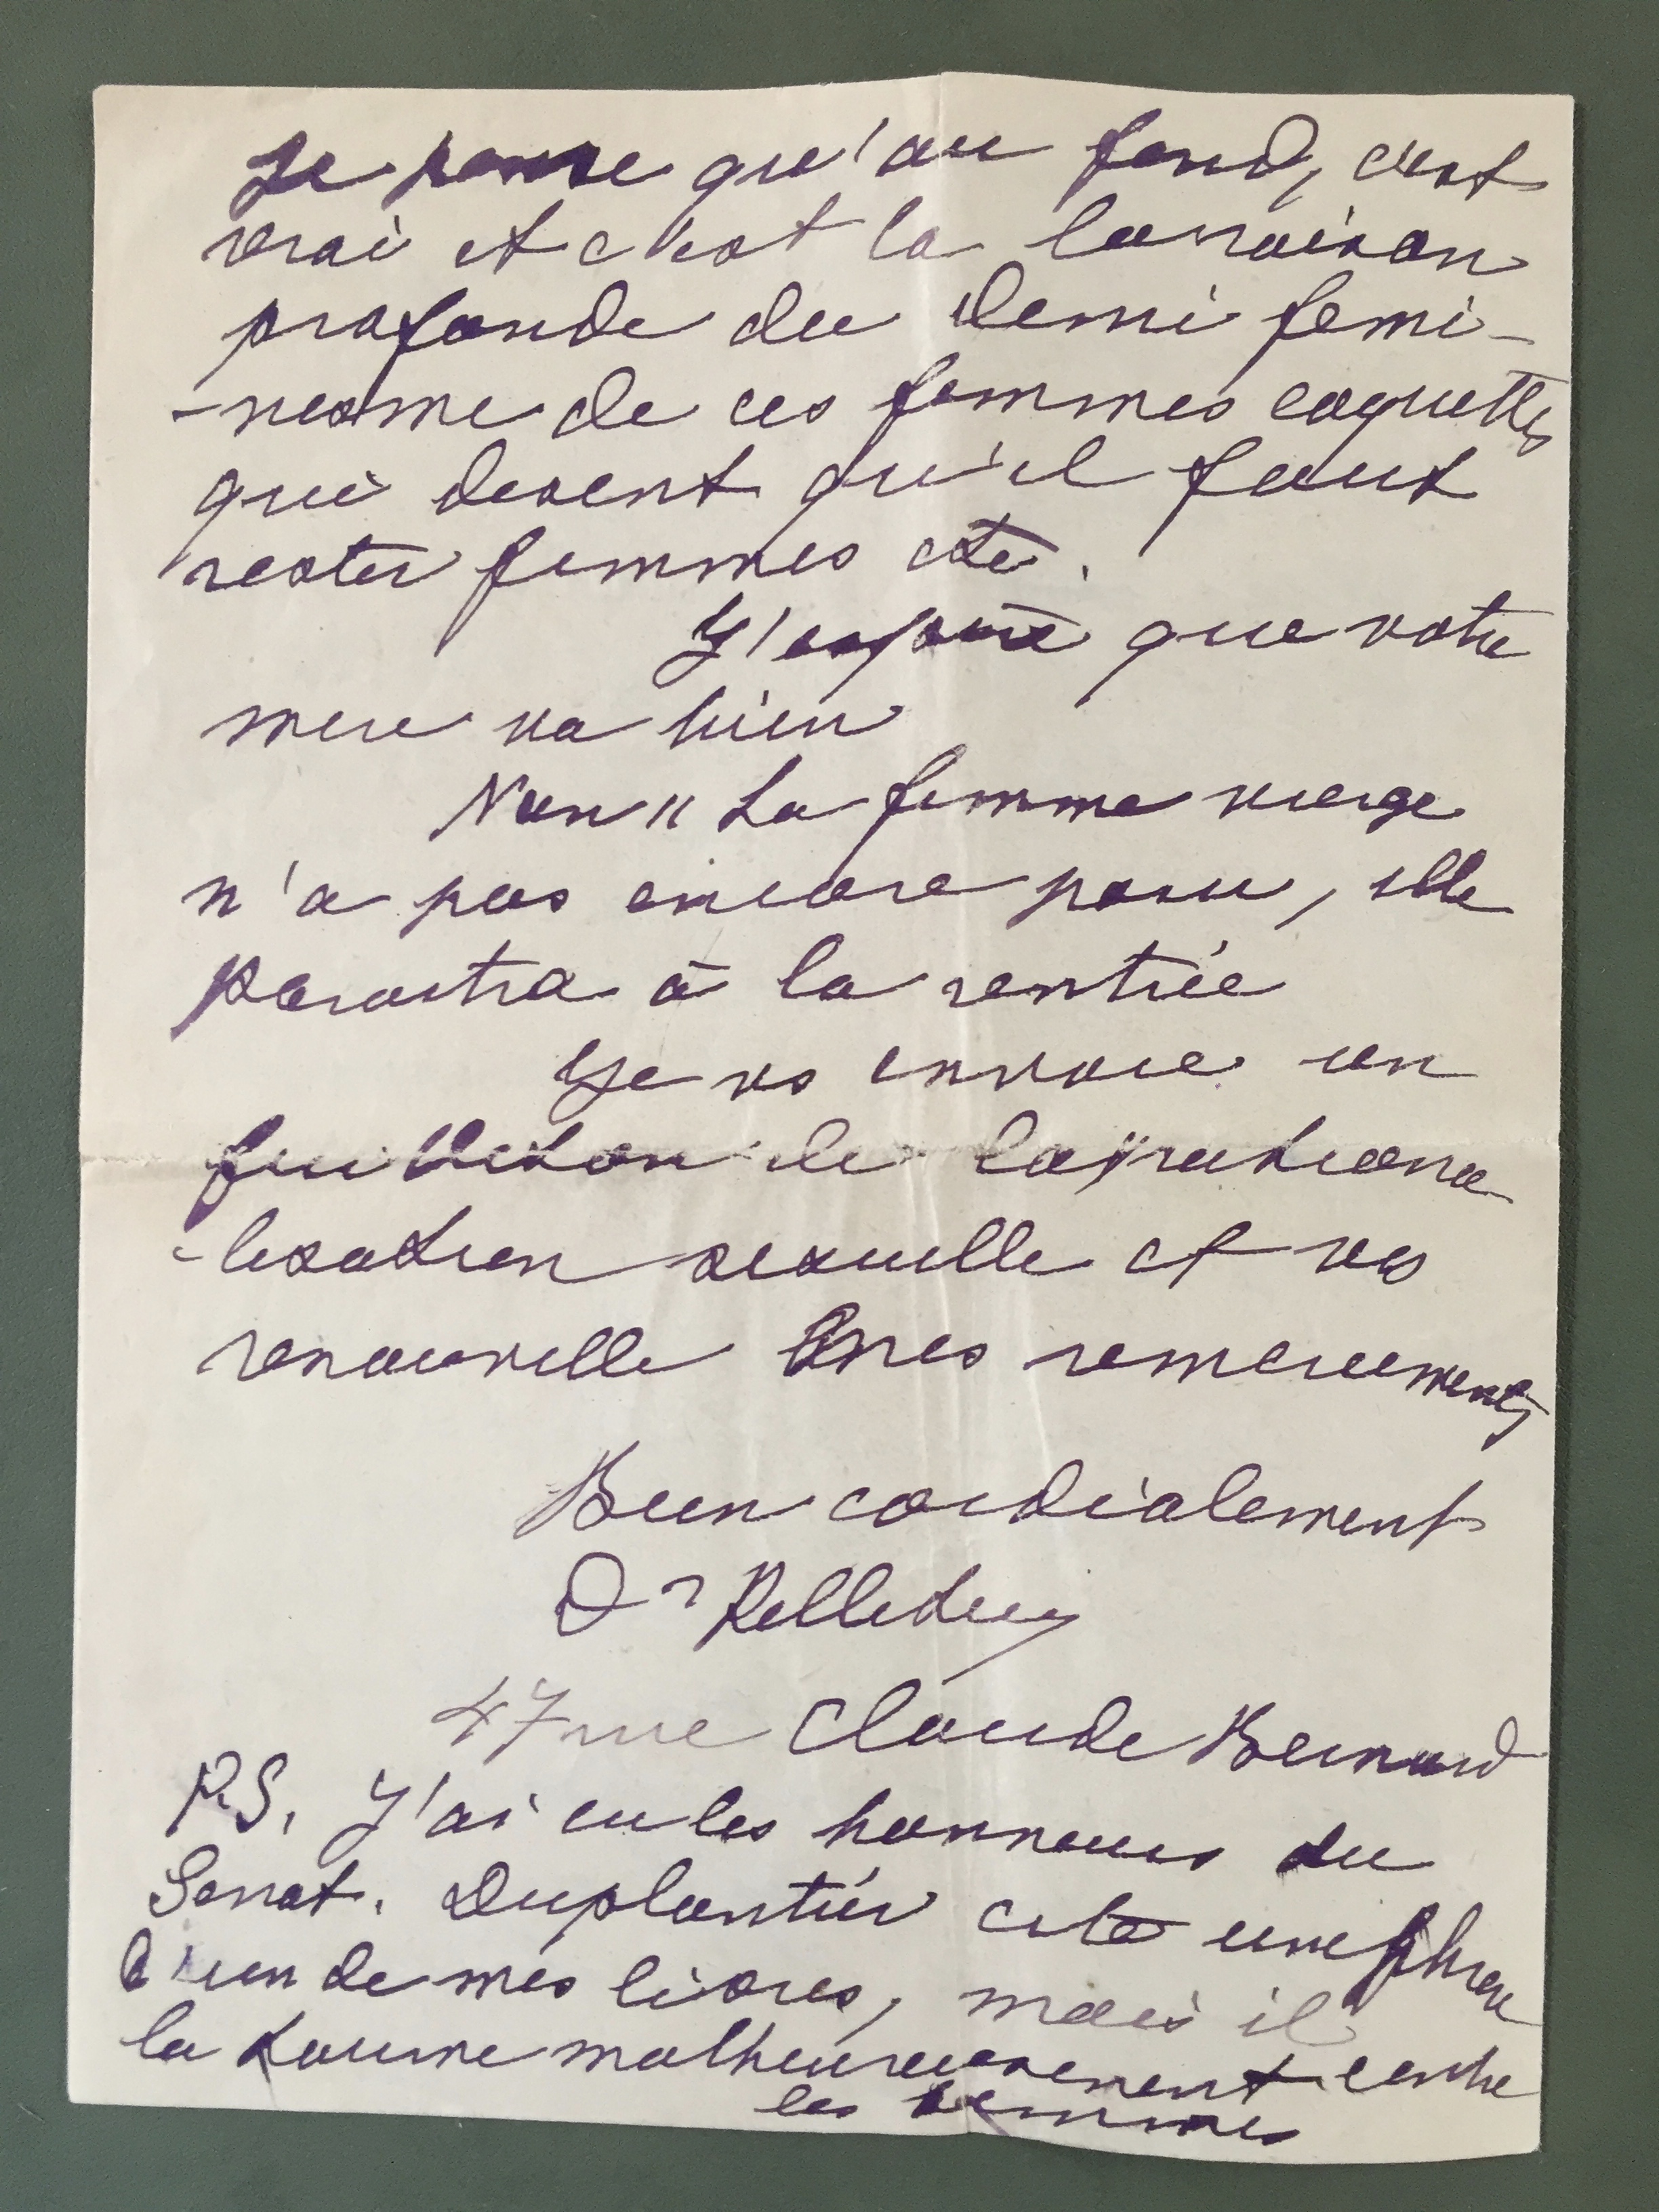 Je pense qu'au fond, c'est
vrai et c'est la la raison
profonde du demi femi-
-nisme de ces femmes coquettes
qui disent qu'il faut
rester femmes etc.
J'espère que votre
mere va bien
Non " La femme vierge
n'a pas encore paru, elle
paraitra à la rentrée
Je vs envoie un
feuilleton de la rationa
-lisation sexuelle et vs
renouvelle mes remerciements
Bien cordialement
Dr Pelletier
47 rue Claude Bernard
P.S. J'ai eu les honneurs du
Senat. Duplantier cite une phrase
d'un de mes livres, mais il
la tourne malheureusement contre
les femmes